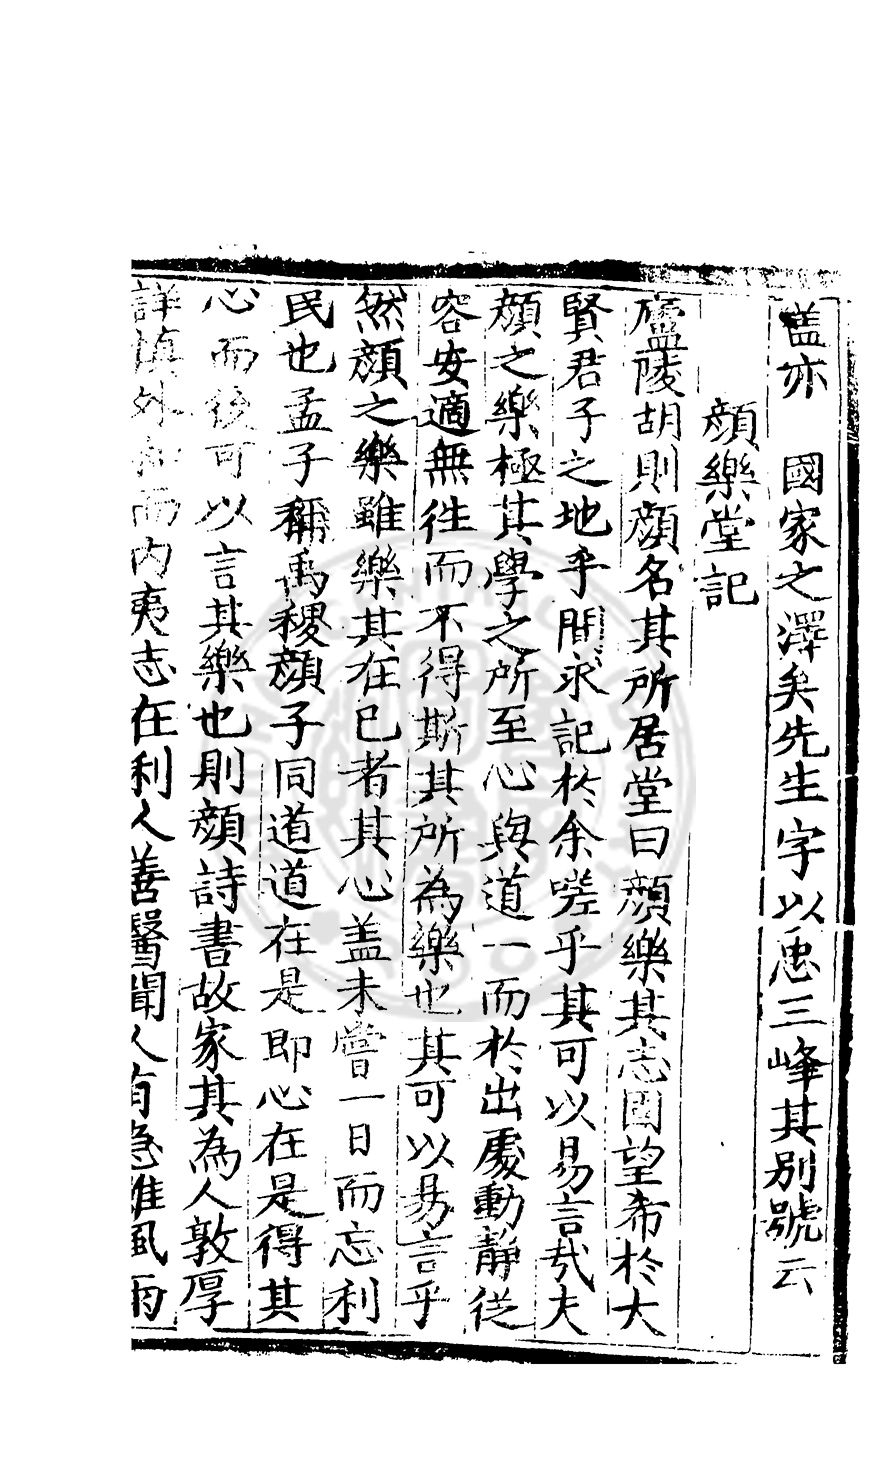 盖亦　國家之澤矣先生字以忠三峰其別號云
顔樂堂記
廬陵胡則顔名其所居堂曰顔樂其志固望希於大
賢君子之地乎間求記於余嗟乎其可以易言哉夫
顔之樂極其學之所至心與道一而於出處動靜從
容安適無徃而不得斯其所為樂也其可以易言乎
然顔之樂雖樂其在已者其心盖未嘗一日而忘利
民也孟子稱禹稷顔子同道道在是即心在是得其
心而後可以言其樂也則顔詩書故家其為人敦厚
詳慎外和而内夷志在利人善醫聞人有急雖風雨